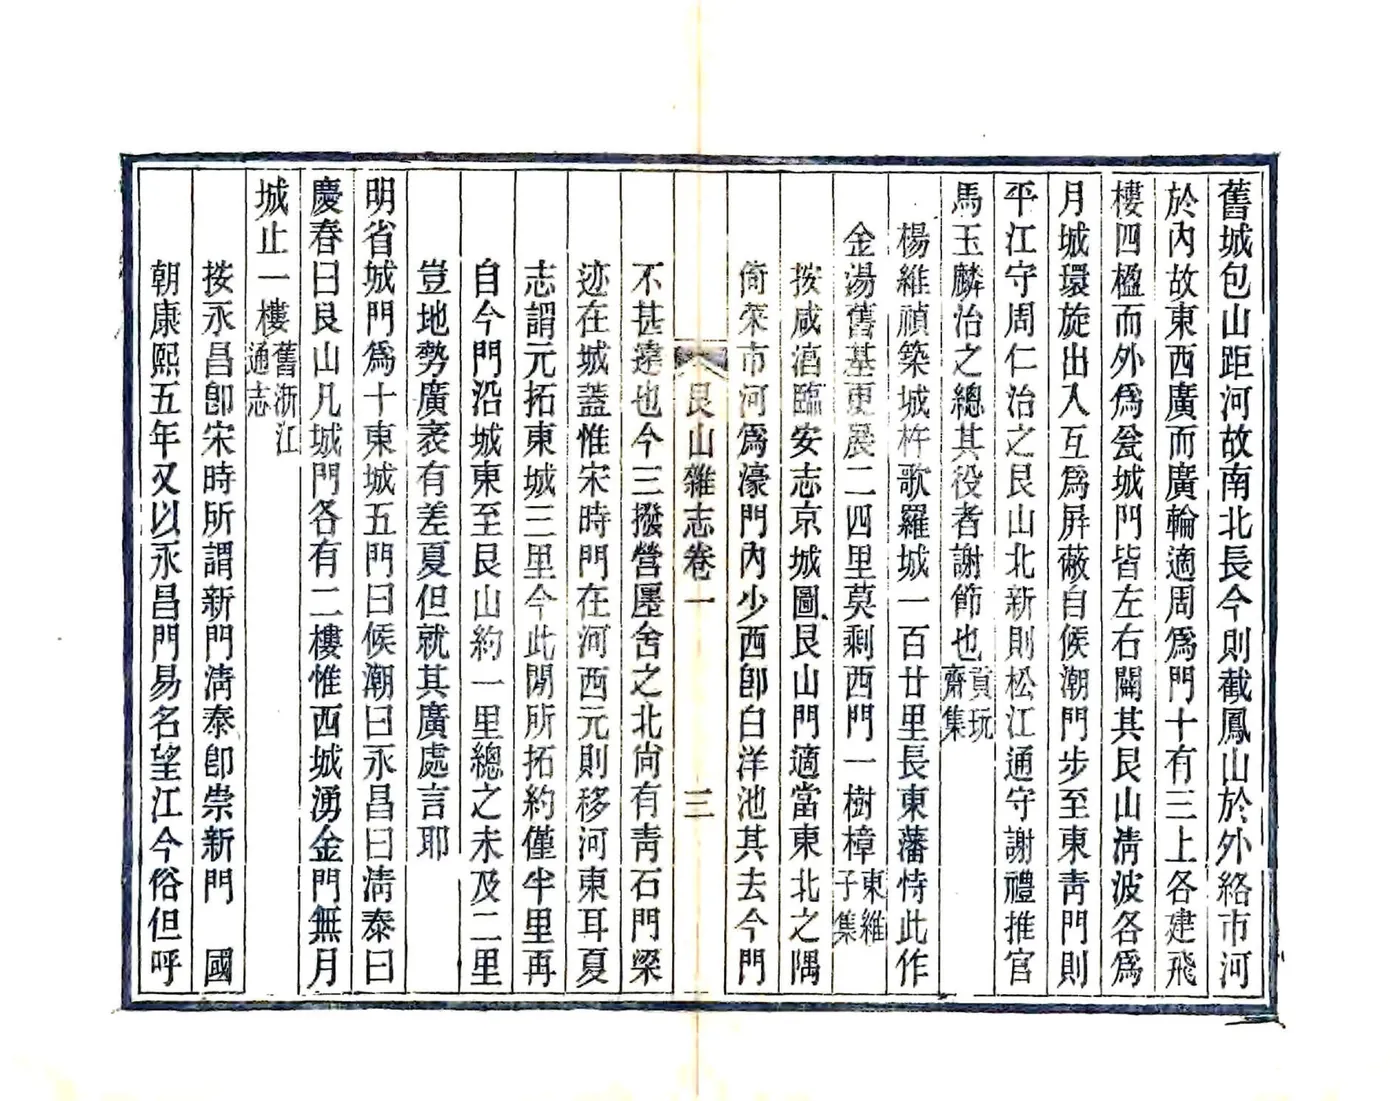 舊城包山距河故南北長今則截鳳山於外絡市河
於內故東西廣而廣輪適周爲門十有三上各建飛
樓四楹而外爲瓮城門皆左右闢其艮山清波各爲
月城環旋出入互爲屏蔽自候潮門步至東青門則
平江守周仁治之艮山北新則松江通守謝禮推官
馬玉麟治之總其役者謝節也
貢玩
齋集
楊維禎築城杵歌羅城一百廿里長東藩恃此作
金湯舊基更展二四里莫剩西門一樹樟
東維
子集
按咸淳臨安志京城圖艮山門適當東北之隅
倚菜市河爲濠門內少西卽白洋池其去今門
艮山雜志卷一
三
不甚遠也今三撥營廛舍之北尙有靑石門梁
迹在城蓋惟宋時門在河西元則移河東耳夏
志謂元拓東城三里今此閒所拓約僅半里再
自今門沿城東至艮山約一里總之未及二里
豈地勢廣袤有差夏但就其廣處言耶
明省城門爲十東城五門曰候潮曰永昌曰清泰曰
慶春曰艮山凡城門各有二樓惟西城湧金門無月
城止一樓
舊浙江
通志
按永昌卽宋時所謂新門淸泰卽崇新門　國
朝康熙五年又以永昌門易名望江今俗但呼